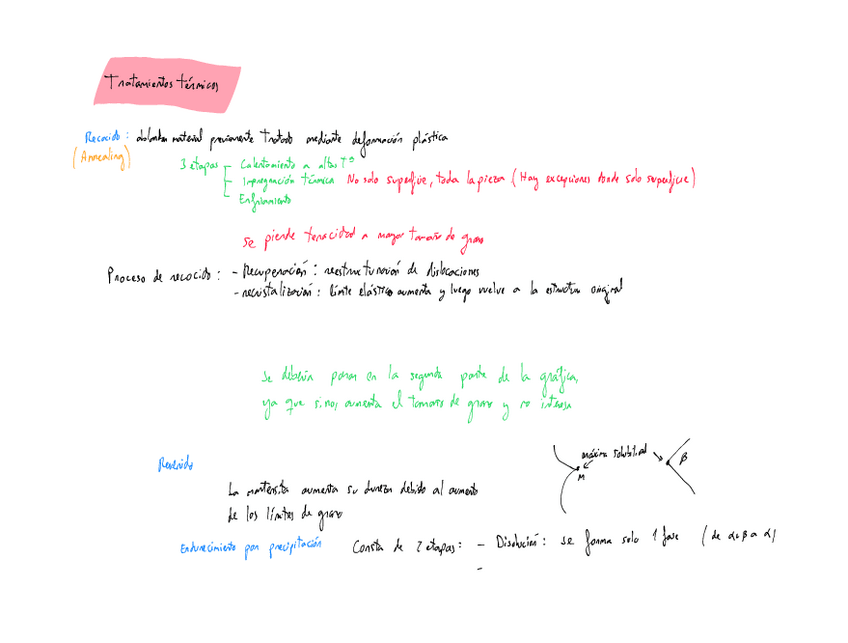 Tratamientos térmicos
Recocido: ablandar material previamente tratado mediante deformación plástica
(Annealing)
3 etapas - Calentamiento a altas Tª
- Impregnación térmica No solo superficie, toda la pieza (Hay excepciones donde solo superficie)
- Enfriamiento
Se pierde tenacidad a mayor tamaño de grano
Proceso de recocido: - Recuperación: reestructuración de dislocaciones
- recristalización: límite elástico aumenta y luego vuelve a la estructura original
Se debería parar en la segunda parte de la gráfica,
ya que si no, aumenta el tamaño de grano y no interesa
máxima solubilidad
M
β
Revenido
La martensita aumenta su dureza debido al aumento
de los límites de grano
Endurecimiento por precipitación Consta de 2 etapas: - Disolución: se forma solo 1 fase (de α+β a α)
-